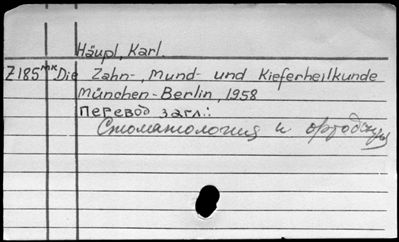 Häupl, Karl.
Z185мк Die Zahn-, Mund- und Kieferheilkunde
München-Berlin, 1958
Перевод загл.:
Стоматология и